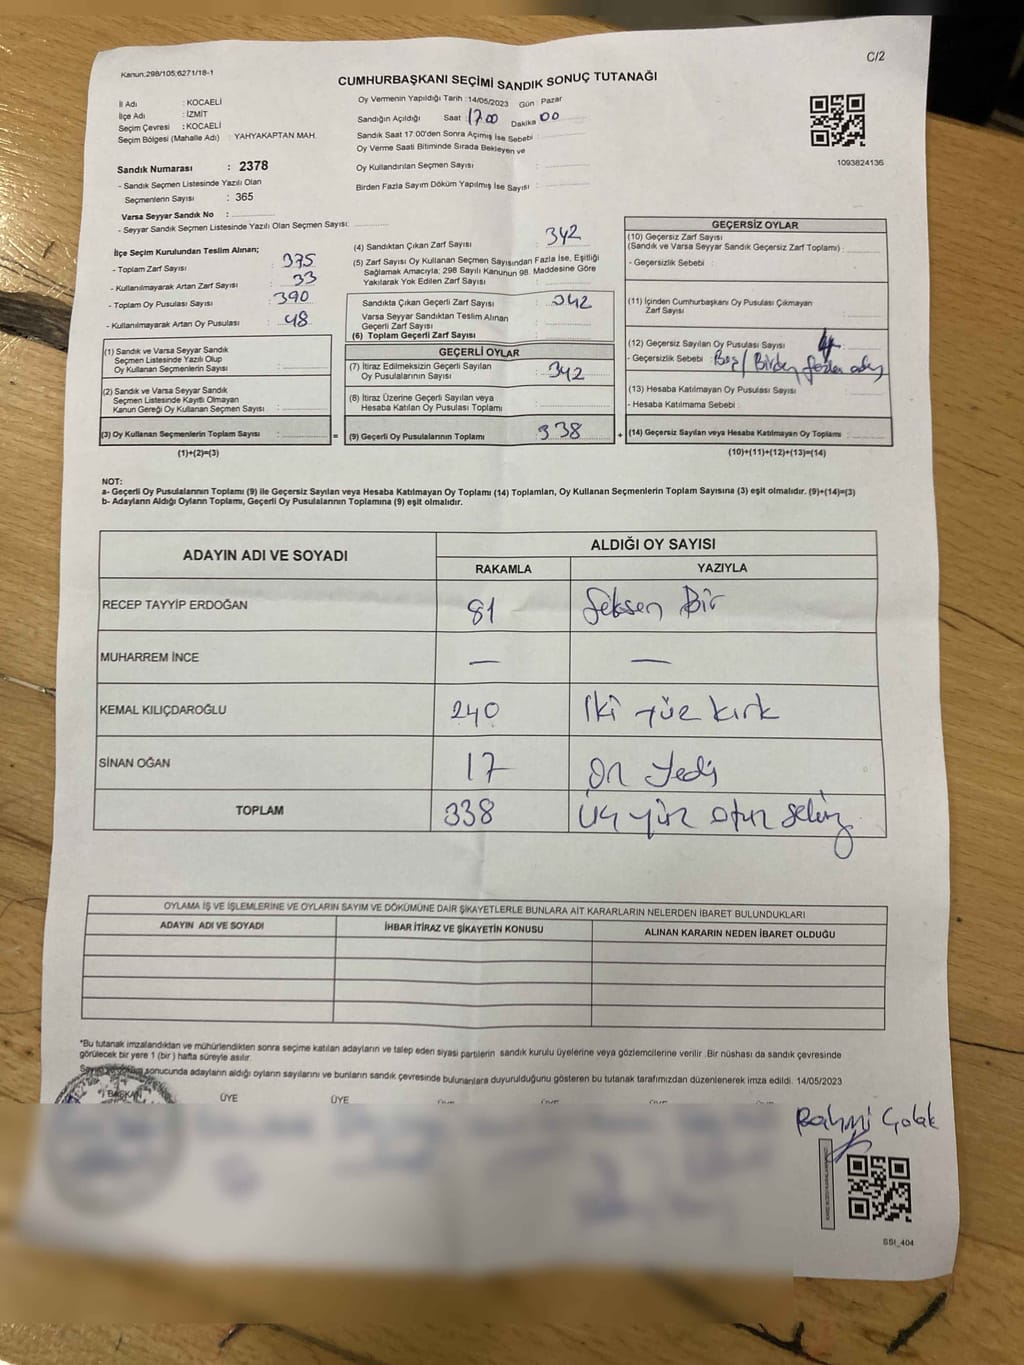 Kanun:298/105;6271/18-1
C/2
CUMHURBAŞKANI SEÇİMİ SANDIK SONUÇ TUTANAĞI
İl Adı : KOCAELİ
İlçe Adı : İZMİT
Seçim Çevresi : KOCAELİ
Seçim Bölgesi (Mahalle Adı) : YAHYAKAPTAN MAH.
Sandık Numarası : 2378
- Sandık Seçmen Listesinde Yazılı Olan
Seçmenlerin Sayısı : 365
Varsa Seyyar Sandık No :
- Seyyar Sandık Seçmen Listesinde Yazılı Olan Seçmen Sayısı:
Oy Vermenin Yapıldığı Tarih : 14/05/2023 Gün : Pazar
Sandığın Açıldığı Saat : 17.00 Dakika 00
Sandık Saat 17:00'den Sonra Açımış İse Sebebi :
Oy Verme Saati Bitiminde Sırada Bekleyen ve
Oy Kullandırılan Seçmen Sayısı :
Birden Fazla Sayım Döküm Yapılmış İse Sayısı :
1093824136
İlçe Seçim Kurulundan Teslim Alınan;
- Toplam Zarf Sayısı : 375
- Kullanılmayarak Artan Zarf Sayısı : 33
- Toplam Oy Pusulası Sayısı : 390
- Kullanılmayarak Artan Oy Pusulası : 48
(1) Sandık ve Varsa Seyyar Sandık
Seçmen Listesinde Yazılı Olup
Oy Kullanan Seçmenlerin Sayısı :
(2) Sandık ve Varsa Seyyar Sandık
Seçmen Listesinde Kayıtlı Olmayan
Kanun Gereği Oy Kullanan Seçmen Sayısı :
(3) Oy Kullanan Seçmenlerin Toplam Sayısı :
(1)+(2)=(3)
(4) Sandıktan Çıkan Zarf Sayısı : 342
(5) Zarf Sayısı Oy Kullanan Seçmen Sayısından Fazla İse, Eşitliği
Sağlamak Amacıyla; 298 Sayılı Kanunun 98. Maddesine Göre
Yakılarak Yok Edilen Zarf Sayısı :
Sandıkta Çıkan Geçerli Zarf Sayısı : 342
Varsa Seyyar Sandıktan Teslim Alınan
Geçerli Zarf Sayısı :
(6) Toplam Geçerli Zarf Sayısı :
GEÇERLİ OYLAR
(7) İtiraz Edilmeksizin Geçerli Sayılan
Oy Pusulalarının Sayısı : 342
(8) İtiraz Üzerine Geçerli Sayılan veya
Hesaba Katılan Oy Pusulası Toplamı :
= (9) Geçerli Oy Pusulalarının Toplamı : 338
GEÇERSİZ OYLAR
(10) Geçersiz Zarf Sayısı
(Sandık ve Varsa Seyyar Sandık Geçersiz Zarf Toplamı) :
- Geçersizlik Sebebi :
(11) İçinden Cumhurbaşkanı Oy Pusulası Çıkmayan
Zarf Sayısı :
(12) Geçersiz Sayılan Oy Pusulası Sayısı : 4
- Geçersizlik Sebebi : Boş / Birden fazla aday
(13) Hesaba Katılmayan Oy Pusulası Sayısı :
- Hesaba Katılmama Sebebi :
+ (14) Geçersiz Sayılan veya Hesaba Katılmayan Oy Toplamı :
(10)+(11)+(12)+(13)=(14)
NOT:
a- Geçerli Oy Pusulalarının Toplamı (9) ile Geçersiz Sayılan veya Hesaba Katılmayan Oy Toplamı (14) Toplamları, Oy Kullanan Seçmenlerin Toplam Sayısına (3) eşit olmalıdır. (9)+(14)=(3)
b- Adayların Aldığı Oyların Toplamı, Geçerli Oy Pusulalarının Toplamına (9) eşit olmalıdır.
ADAYIN ADI VE SOYADI
ALDIĞI OY SAYISI
RAKAMLA YAZIYLA
RECEP TAYYİP ERDOĞAN 81 Seksen Bir
MUHARREM İNCE — —
KEMAL KILIÇDAROĞLU 240 İki yüz kırk
SİNAN OĞAN 17 On Yedi
TOPLAM 338 Üç yüz otuz sekiz
OYLAMA İŞ VE İŞLEMLERİNE VE OYLARIN SAYIM VE DÖKÜMÜNE DAİR ŞİKAYETLERLE BUNLARA AİT KARARLARIN NELERDEN İBARET BULUNDUKLARI
ADAYIN ADI VE SOYADI İHBAR İTİRAZ VE ŞİKAYETİN KONUSU ALINAN KARARIN NEDEN İBARET OLDUĞU
*Bu tutanak imzalandıktan ve mühürlendikten sonra seçime katılan adayların ve talep eden siyasi partilerin sandık kurulu üyelerine veya gözlemcilerine verilir .Bir nüshası da sandık çevresinde
görülecek bir yere 1 (bir ) hafta süreyle asılır.
sonucunda adayların aldığı oyların sayılarını ve bunların sandık çevresinde bulunanlara duyurulduğunu gösteren bu tutanak tarafımızdan düzenlenerek imza edildi. 14/05/2023
BAŞKAN ÜYE ÜYE
Rahmi Çolak
SSI_404